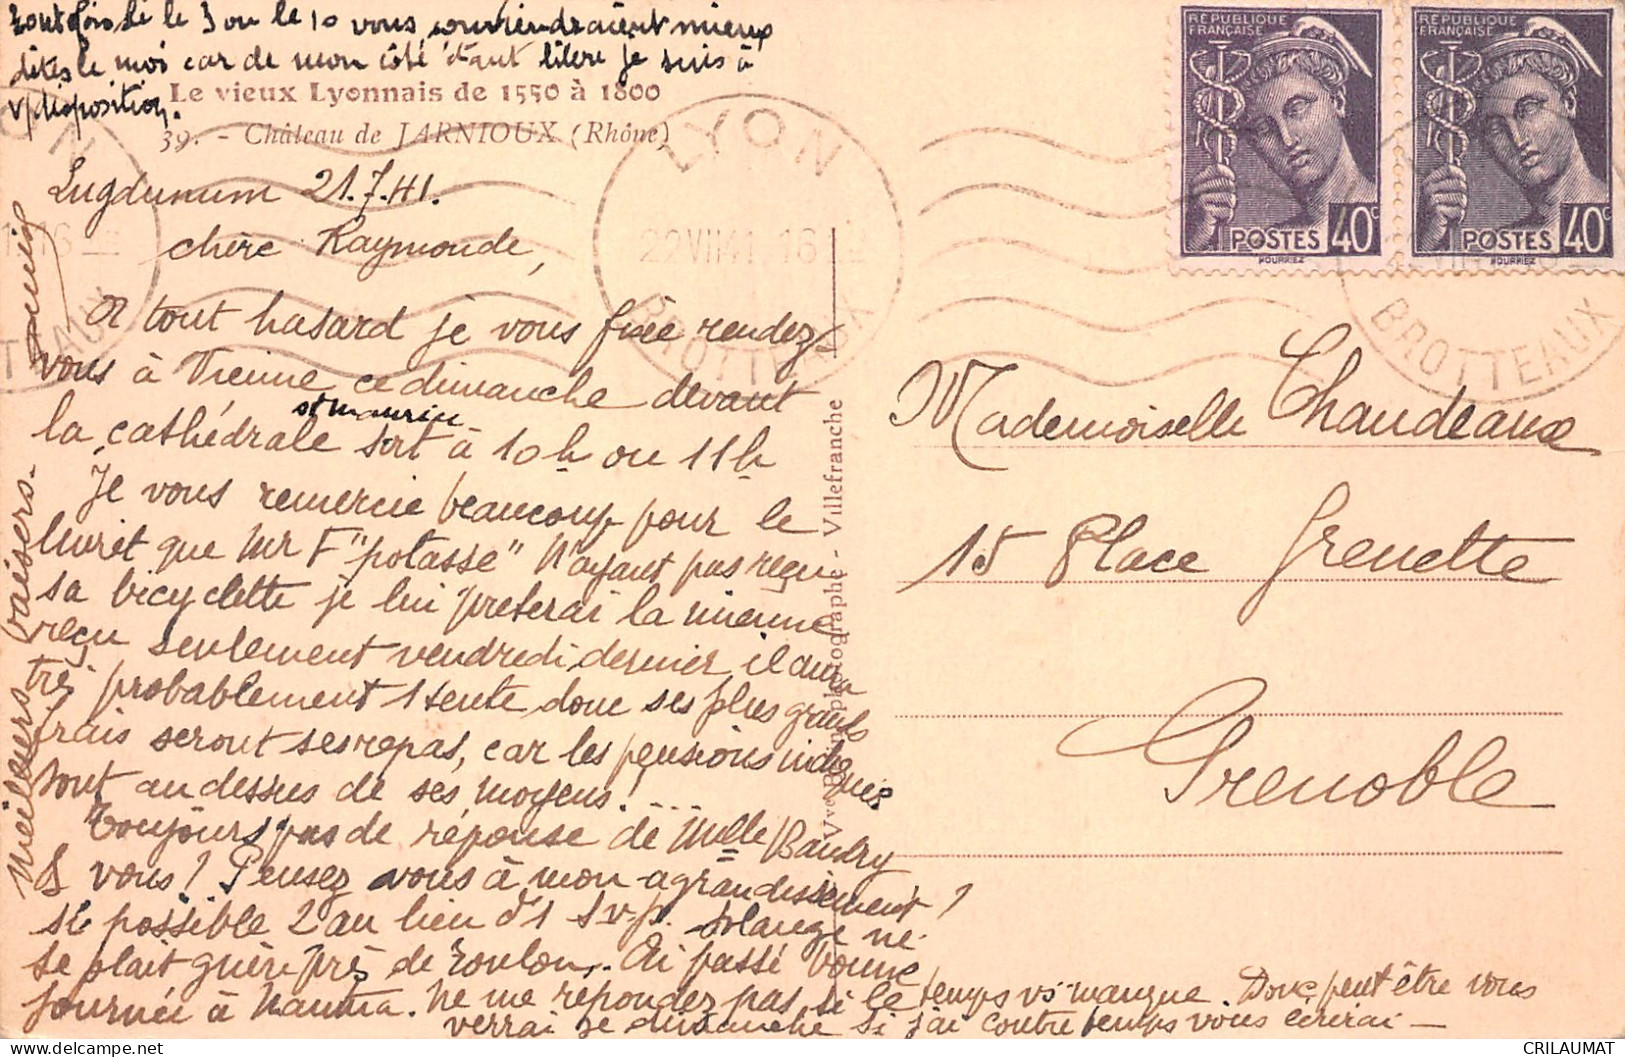 Toutefois si le 3 ou le 10 vous conviendraient mieux
dites le moi car de mon côté étant libère je suis à
v/disposition.
Le vieux Lyonnais de 1550 à 1800
39. - Château de JARNIOUX (Rhône)
Lugdunum 21.7.41.
chère Raymonde,
A tout hasard je vous fixe rendez-
vous à Vienne ce dimanche devant
la cathédrale st maurice soit à 10h ou 11h
Je vous remercie beaucoup pour le
livret que Mr F "potasse" N'ayant pas reçu
sa bicyclette je lui prêterai la mienne
reçu seulement vendredi dernier il aura
très probablement 1 tente donc ses plus grands
frais seront ses repas, car les pensions indiquées
sont au dessus de ses moyens! ...
Toujours pas de réponse de Mlle Baudry
& vous? Pensez vous à mon agrandissement?
si possible 2 au lieu d'1 S.v.p. Solange ne
se plait guère près de Toulon. Ai passé bonne
journée à Nantua. Ne me répondez pas si le temps vs manque. Donc peut être vous
verrai je dimanche si j'ai contre temps vous écrirai —
Meilleurs baisers.
Vve photographe - Villefranche
LYON
22 VII 41 16
BROTTEAUX
RÉPUBLIQUE
FRANÇAISE
POSTES 40c
RÉPUBLIQUE
FRANÇAISE
POSTES 40c
BROTTEAUX
Mademoiselle Chaudeaux
15 Place Grenette
Grenoble
CRILAUMAT